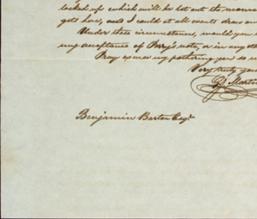 locked up which will be let out the moment
gets home, and I could at all events draw on
Under these circumstances, would you
my acceptance of Perry's note, or in any other
Pray excuse my pothering you so
Very truly your
Benjamin Barton Esqr.